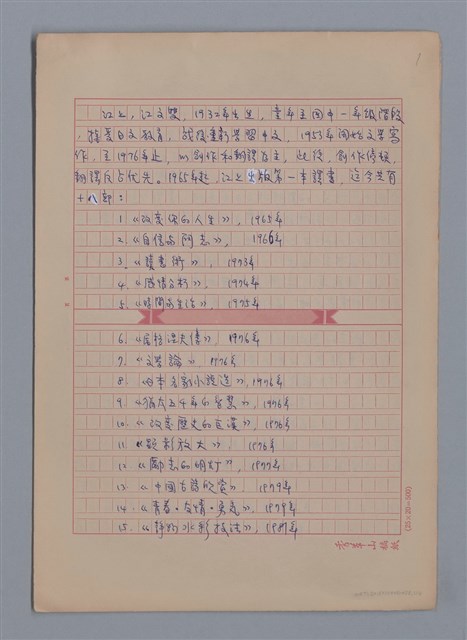 江上，江文雙，1932年生生，童年至國中一年級階段
，接受日文教育，戰後重新學習中文，1953年開始文學寫
作，至1976年止，以創作和翻譯為主，此後，創作停頓，
翻譯反占優先。1965年起，江上出版第一本譯書，迄今共有
十八部：
1. 《改變你的人生》，1965年
2. 《自信與鬥志》，1966年
3. 《讀書術》，1973年
4. 《感情分析》，1974年
5. 《時間與生活》，1975年
6. 《居禮夫人傳》，1976年
7. 《文學論》，1976年
8. 《日本名家小說選》，1976年
9. 《猶太五千年的智慧》，1976年
10. 《改變歷史的巨漢》，1976年
11. 《顯影放大》，1976年
12. 《勵志的明燈》，1977年
13. 《中國古詩欣賞》，1979年
14. 《青春・友情・勇氣》，1979年
15. 《靜物水彩技法》，1981年
(25×20=500)
芳草山稿紙